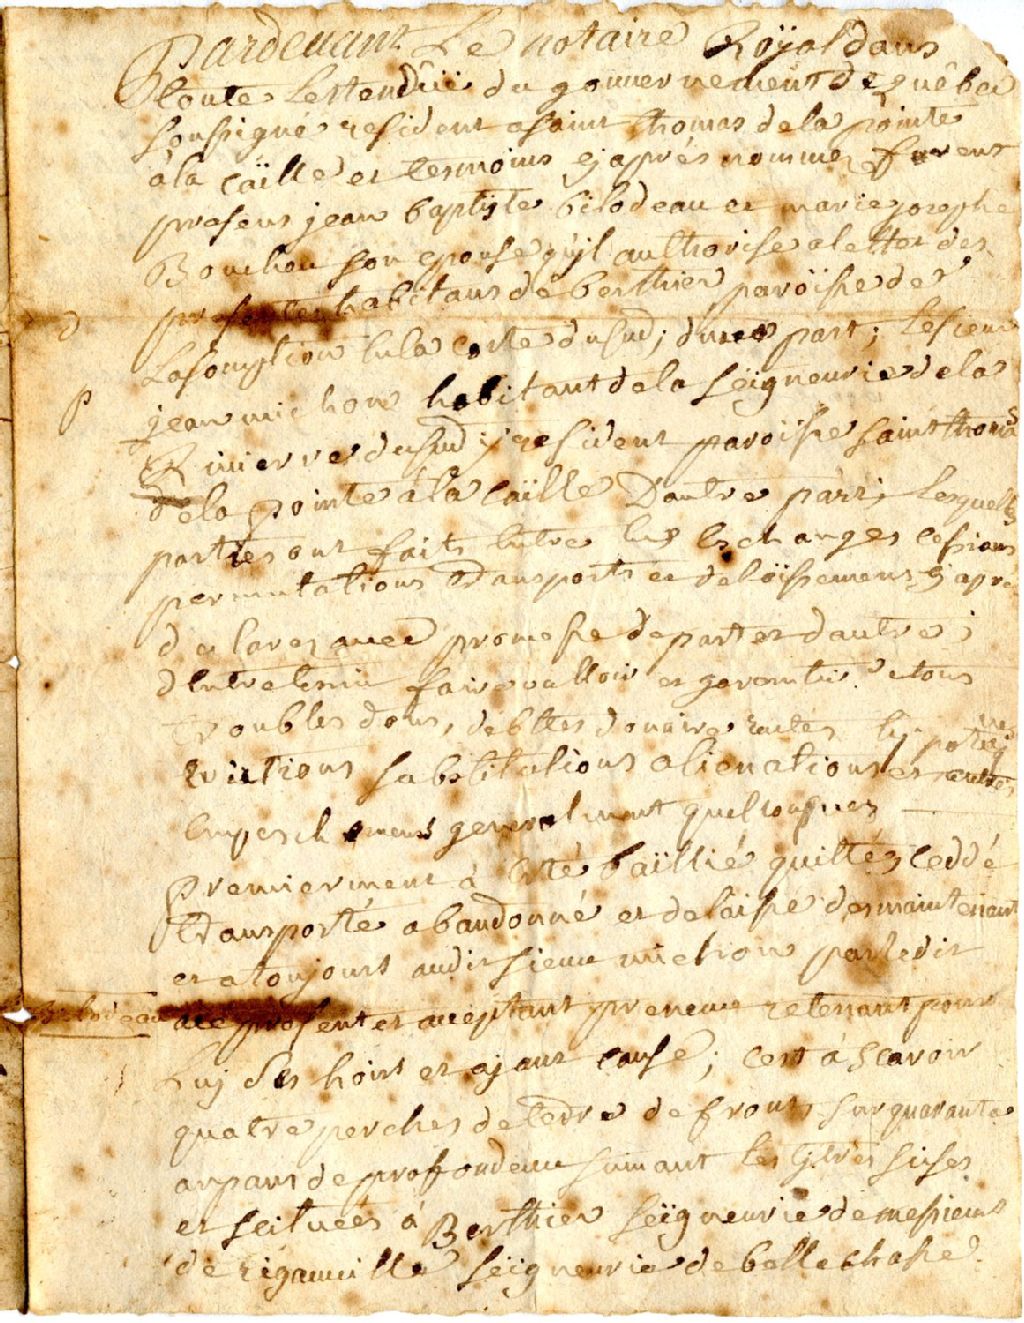 Pardevant Le notaire Royal dans
toute Lestendüe du gouvernement de quêbec
soussigné resident a saint thomas de la pointe
à la caille et tesmoins cy après nommez furent
presens jean baptiste bilodeau et marie josephe
Bouchon son epouse quil authorise a leffet des
presentes habitans de berthier paroisse de
Lasomption en la coste du sud; d'une part; Le sieur
jean michon habitant de la seigneurie de la
Rivierre du sud y resident paroisse saint thomas
de la pointe à la caille D'autre part; Lesquelles
parties ont faits entre eux Eschanges cessions
permutations transports et delaissemens cy apres
declarez avec promesse de part et dautre
dentretenir faire valloir et garentir de tous
troubles dons, debttes douaire rentes hipoteques
Evictions substitutions alienations et autres
Empeschemens generalement quelconques
Premierement à Esté baillié quittés Ceddé
transporté abandonné et delaissé des maintenant
et a toujours audit sieur michon par ledit
Bilodeau
ace present et acceptant preneur retenant pour
Luy Ses hoirs et ayant cause; cest à scavoir
quatre perches de terre de front sur quarante
arpans de proffondeur suivant les titres sises
et scituées à Berthier seigneurie de messieurs
de rigauville seigneurie de bellechasse